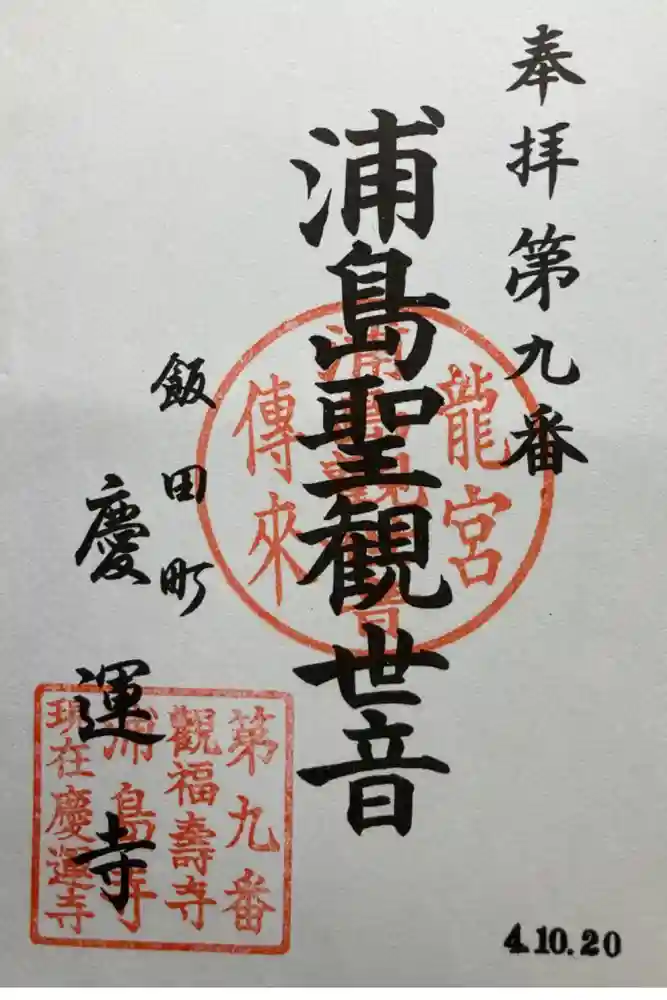 奉拝第九番
浦島聖観世音
飯田町
慶運寺
龍宮
浦島観世音
傳来
第九番
觀福壽寺
浦島寺
現在慶運寺
4.10.20